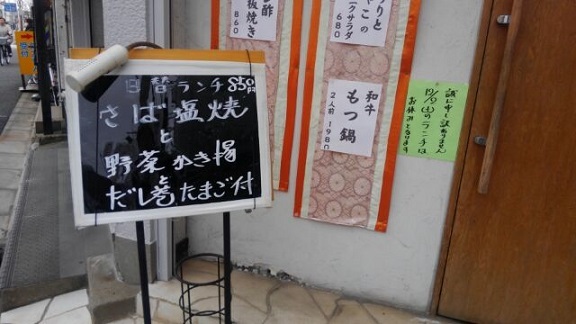 日替ランチ850円
さば塩焼
と
野菜かき揚
と
だし巻たまご付
酢
板焼き
860
りと
やこの
ニクサラダ
680
和牛
もつ鍋
2人前 1980
誠に申し訳ありません
12/9(土)のランチは
お休みとなります